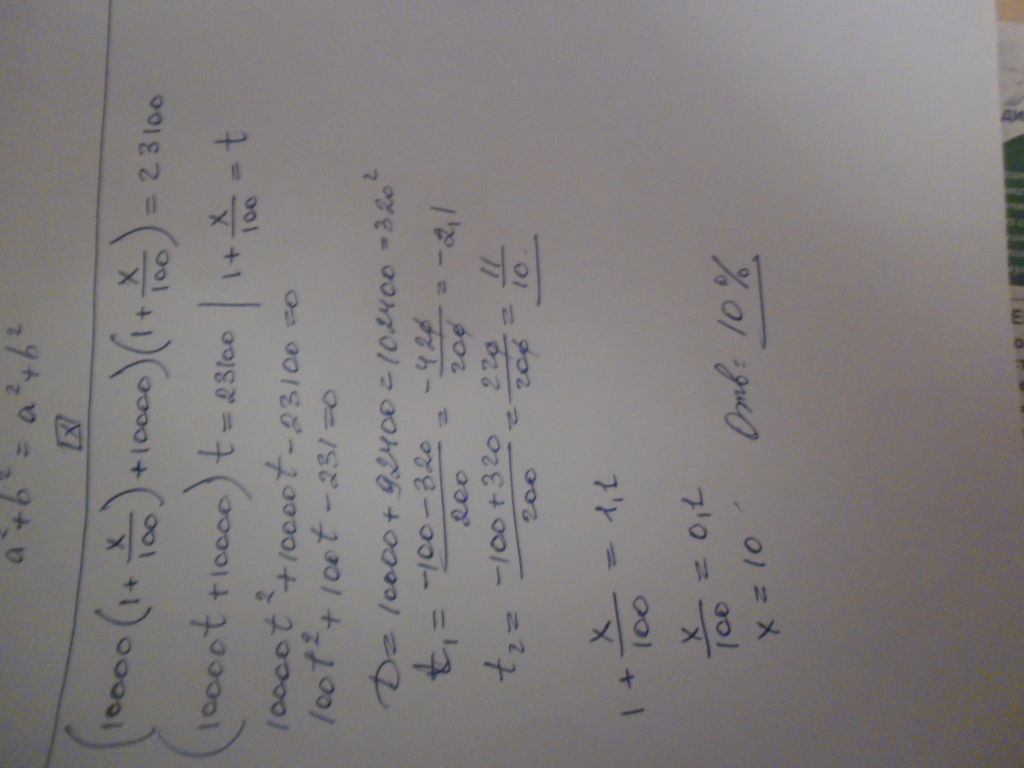 a² + b² = a² + b²
X
(10000(1 + x/100) + 10000)(1 + x/100) = 23100
(10000t + 10000)t = 23100 | 1 + x/100 = t
10000t² + 10000t - 23100 = 0
100t² + 100t - 231 = 0
D = 10000 + 92400 = 102400 = 320²
t₁ = (-100 - 320)/200 = -420/200 = -2,1
t₂ = (-100 + 320)/200 = 220/200 = 11/10.
1 + x/100 = 1,1
x/100 = 0,1
x = 10.
Отв: 10%